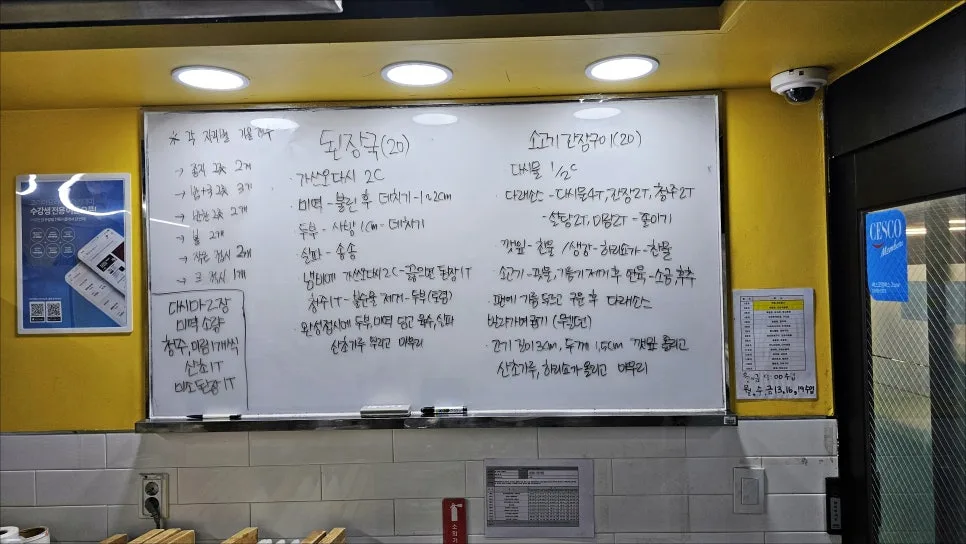 ※ 각 자리별 기물 개수
→ 공기 2개
→ 2개
→ 볼 2개
→ 작은 접시 2개
→ 큰 접시 1개
다시마 2장
미역 소량
청주, 미림 1개씩
산초 1T
미소된장 1T
된장국(20)
· 가쓰오다시 2C
· 미역 - 불린 후 데치기 - 1~2cm
두부 - 사방 1cm - 데치기
실파 - 송송
냄비에 가쓰오다시 2C - 끓으면 된장 1T
청주 1T - 불순물 제거 - 두부(토렴)
· 완성접시에 두부, 미역 담고 육수, 실파
산초가루 뿌리고 마무리
소고기 간장구이(20)
다시물 1/2C
다래소스 - 다시물4T, 간장2T, 청주2T
설탕2T, 미림2T - 졸이기
깻잎 - 찬물 / 생강 - 하리쇼가 - 찬물
소고기 - 핏물, 기름기 제거 후 연육 - 소금, 후추
팬에 기름 두르고 구운 후 다래소스
발라가며 굽기 (미디움)
· 고기 길이 3cm, 두께 1.5cm 깻잎 올리고
산초가루, 하리쇼가 올리고 마무리
수강생 전용
CESCO
Members
월, 수, 금 13, 16, 19수업
소화기